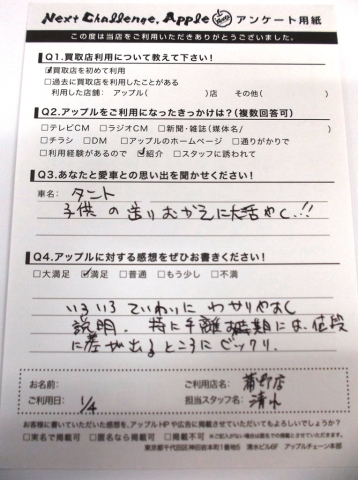 Next Challenge, Apple アンケート用紙
この度は当店をご利用いただきありがとうございました。
Q1.買取店利用について教えて下さい!
☑買取店を初めて利用
□過去に買取店を利用したことがある
利用した店舗: アップル( )店 その他( )
Q2.アップルをご利用になったきっかけは?(複数回答可)
□テレビCM □ラジオCM □新聞・雑誌(媒体名/ )
□チラシ □DM □アップルのホームページ □通りがかりで
□利用経験があるので ☑紹介 □スタッフに誘われて
Q3.あなたと愛車との思い出を聞かせください!
車名: タント
子供の送りむかえに大活やく!!
Q4.アップルに対する感想をぜひお書きください!
□大満足 ☑満足 □普通 □もう少し □不満
いろいろていねいにわかりやすく
説明. 特に手離 時期には、値段
に差が出るところにビックリ.
お名前: ご利用店名: 蒲郡店
ご利用日: 1/4 担当スタッフ名: 清水
お客様に書いていただいた感想を、アップルHPや広告に掲載させていただいてもよろしいでしょうか?
□実名で掲載可 □匿名なら掲載可 □掲載不可 ※ご記入がない場合は匿名での掲載とさせていただきます。
東京都千代田区神田佐久間町1番地5 清水ビル6F アップルチェーン本部